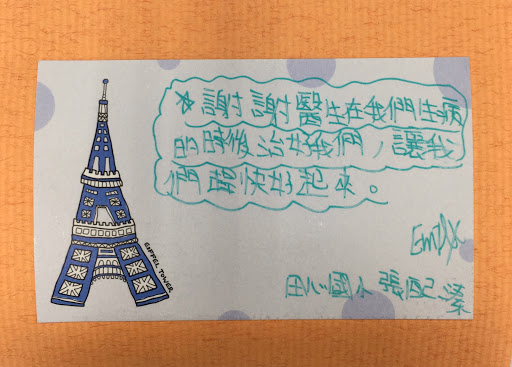 *謝謝醫生在我們生病
的時後治好我們，讓我
們趕快好起來。
EIFFEL TOWER
田心國小 張配潔